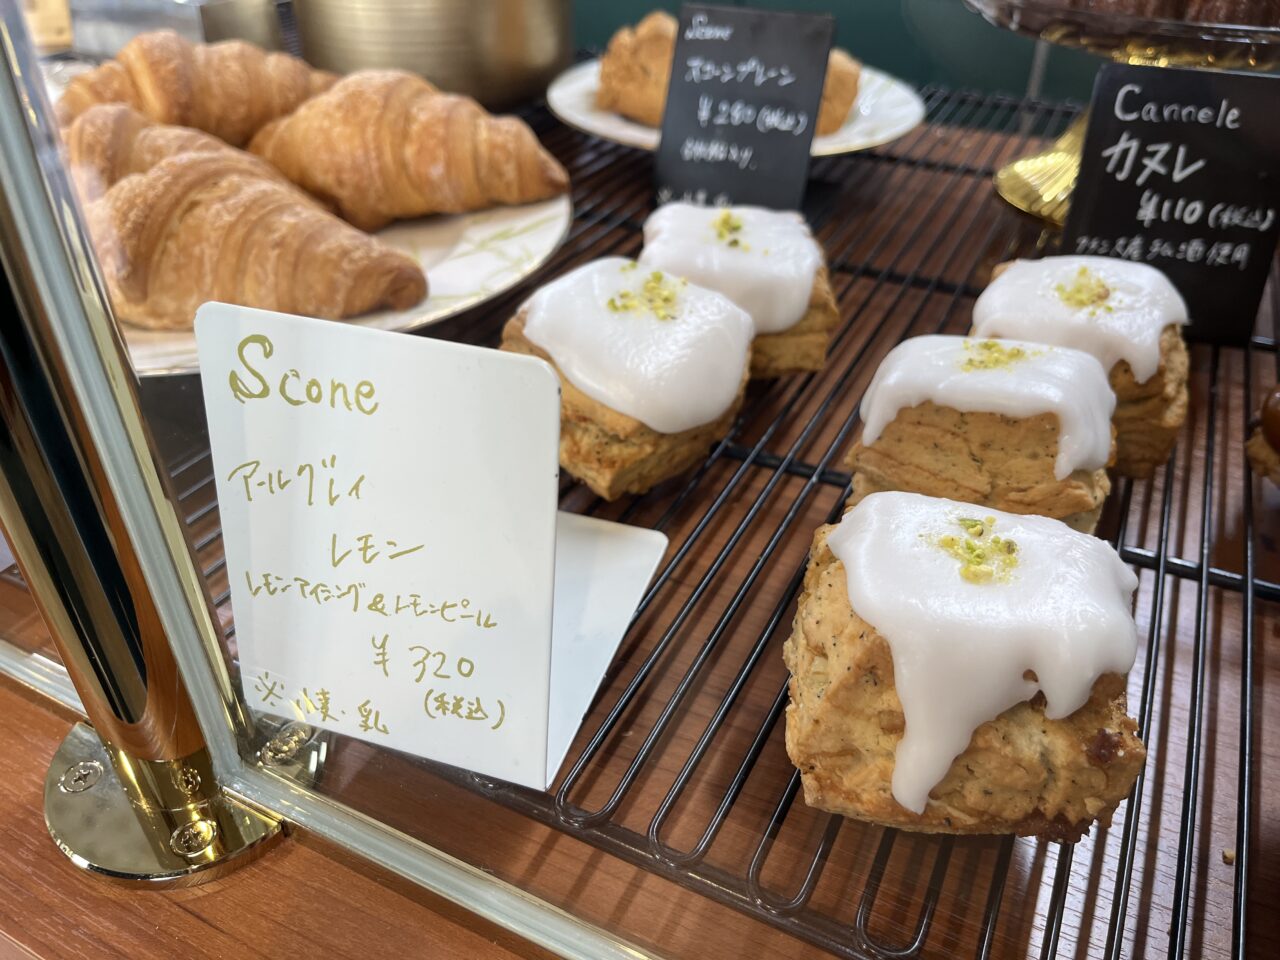 Scone
アールグレイ
レモン
レモンアイシング&レモンピール
¥320
(税込)
Scone
スコーンプレーン
¥280(税込)
Cannele
カヌレ
¥110(税込)
ラム酒使用